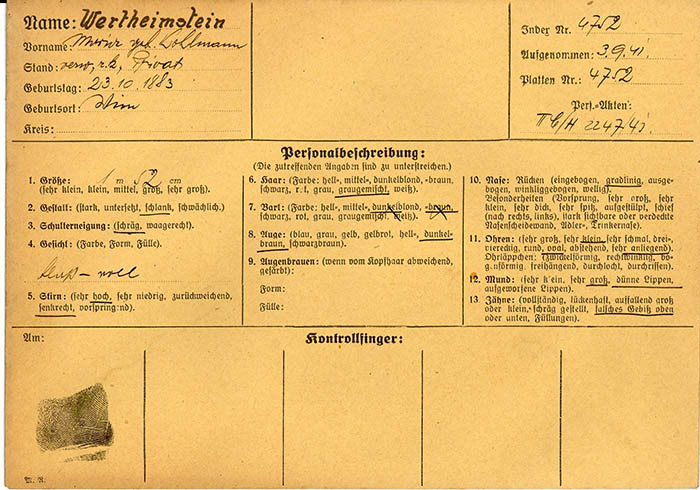 Name: Wertheimstein
Vorname: geb.
Stand: verw., r.k., Privat
Geburtstag: 23.10.1883
Geburtsort: Wien
Kreis:
Index Nr. 4752
Aufgenommen: 3.9.41.
Platten Nr.: 4752
Pers.-Akten:
II C/H 2247/41.
Personalbeschreibung:
(Die zutreffenden Angaben sind zu unterstreichen.)
1. Größe: 1 m 52 cm
(sehr klein, klein, mittel, groß, sehr groß).
2. Gestalt: (stark, untersetzt, schlank, schwächlich).
3. Schulterneigung: (schräg, waagerecht).
4. Gesicht: (Farbe, Form, Fülle).
blaß - voll
5. Stirn: (sehr hoch, sehr niedrig, zurückweichend,
senkrecht, vorspringend)
6. Haar: (Farbe: hell-, mittel-, dunkelblond, -braun,
schwarz, rot, grau, graugemischt, weiß).
7. Bart: (Farbe: hell-, mittel-, dunkelblond, -braun,
schwarz, rot, grau, graugemischt, weiß).
8. Auge: (blau, grau, gelb, gelbrot, hell-, dunkel-
braun, schwarzbraun).
9. Augenbrauen: (wenn vom Kopfhaar abweichend,
gefärbt):
Form:
Fülle:
10. Nase: Rücken (eingebogen, gradlinig, ausge-
bogen, winkliggebogen, wellig).
Besonderheiten (Vorsprung, sehr groß, sehr
klein, sehr dick, sehr spitz, aufgestülpt, schief
(nach rechts, links), stark sichtbare oder verdeckte
Nasenscheidewand, Adler-, Trinkernase).
11. Ohren: (sehr groß, sehr klein, sehr schmal, drei-
viereckig, rund, oval, abstehend, sehr anliegend).
Ohrläppchen: (zwickelförmig, rechtwinklig, bo-
genförmig, freihängend, durchlocht, durchrissen).
12. Mund: (sehr klein, sehr groß, dünne Lippen,
aufgeworfene Lippen).
13. Zähne: (vollständig, lückenhaft, auffallend groß
oder klein, schräg gestellt, falsches Gebiß oben
oder unten, Füllungen).
Am:
Kontrollfinger:
M. R.